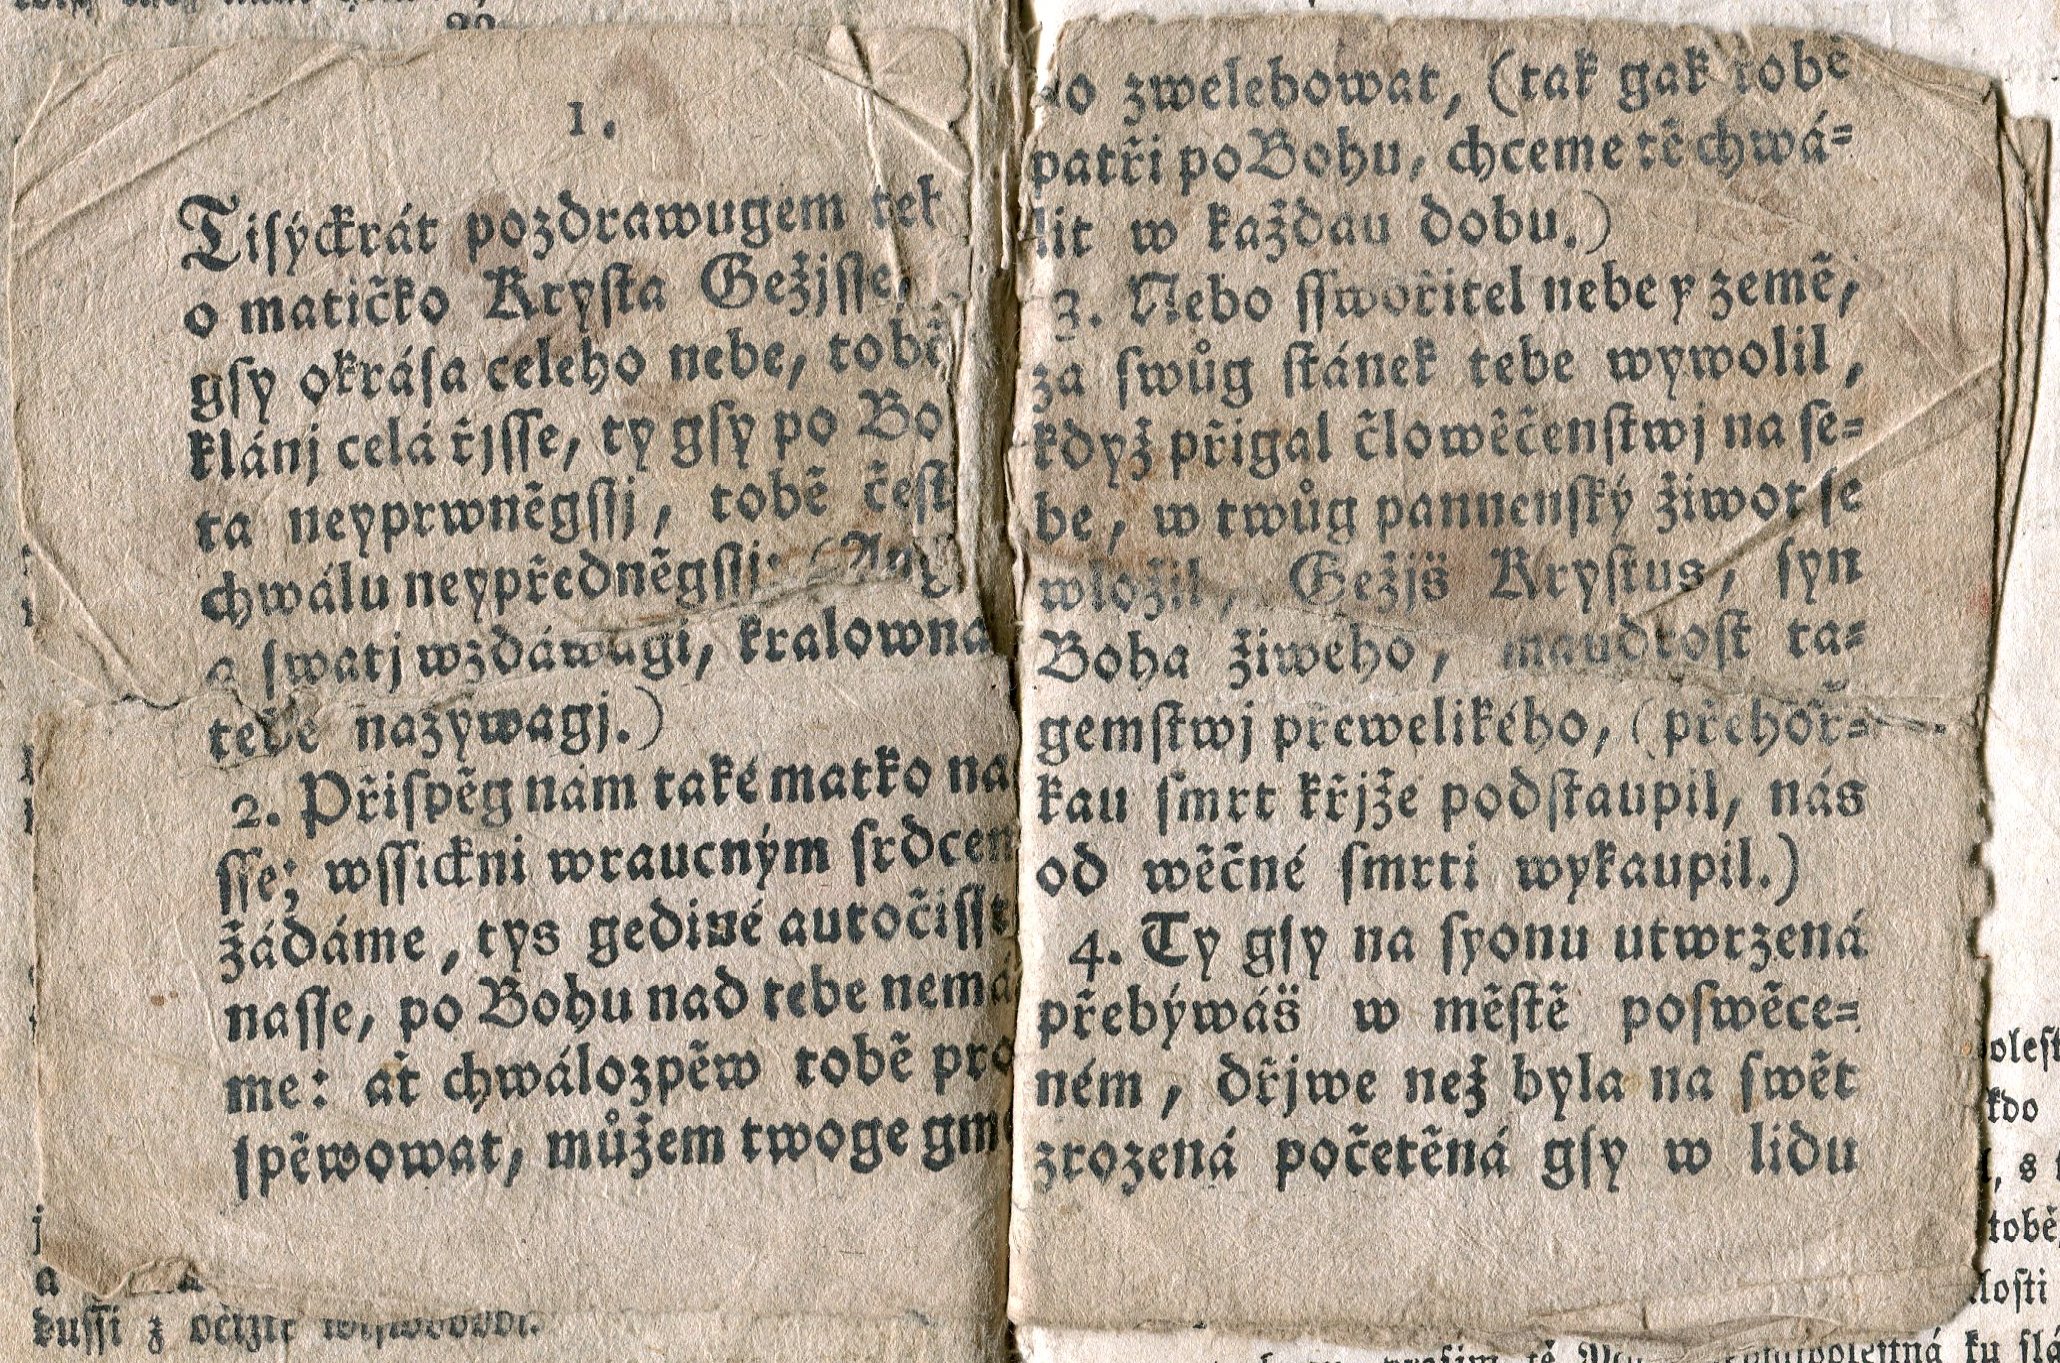 1.
Tisýckrát pozdrawugem teb
o matičko Krysta Gežjsse,
gsy okrása celeho nebe, tobě
klánj celá řjsse, ty gsy po Bo
ta neyprwněgssj, tobě čest
chwálu neypředněgssj: (Ang
a swatj wzdáwagi, kralowna
tebe nazywagj.)
2. Přispěg nám také matko na
sse; wssickni wraucným srdcem
žádáme, tys gediné autočisst
nasse, po Bohu nad tebe nemá
me: ať chwálozpěw tobě pro
spěwowat, můžem twoge gm
no zwelebowat, (tak gak tobě
patři po Bohu, chceme tě chwá=
lit w každau dobu.)
3. Nebo sswořitel nebe y země,
za swůg stánek tebe wywolil,
když přigal člowěčenstwj na se=
be, w twůg pannenský žiwot se
wložil, Gežjš Krystus, syn
Boha žiweho, maudrost ta=
gemstwj přewelikého, (přehoř=
kau smrt křjže podstaupil, nás
od wěčné smrti wykaupil.)
4. Ty gsy na syonu utwrzená
přebýwáš w městě poswěce=
ném, dřjwe než byla na swět
zrozená početěná gsy w lidu
kdo
tobě,
kussi z očizit